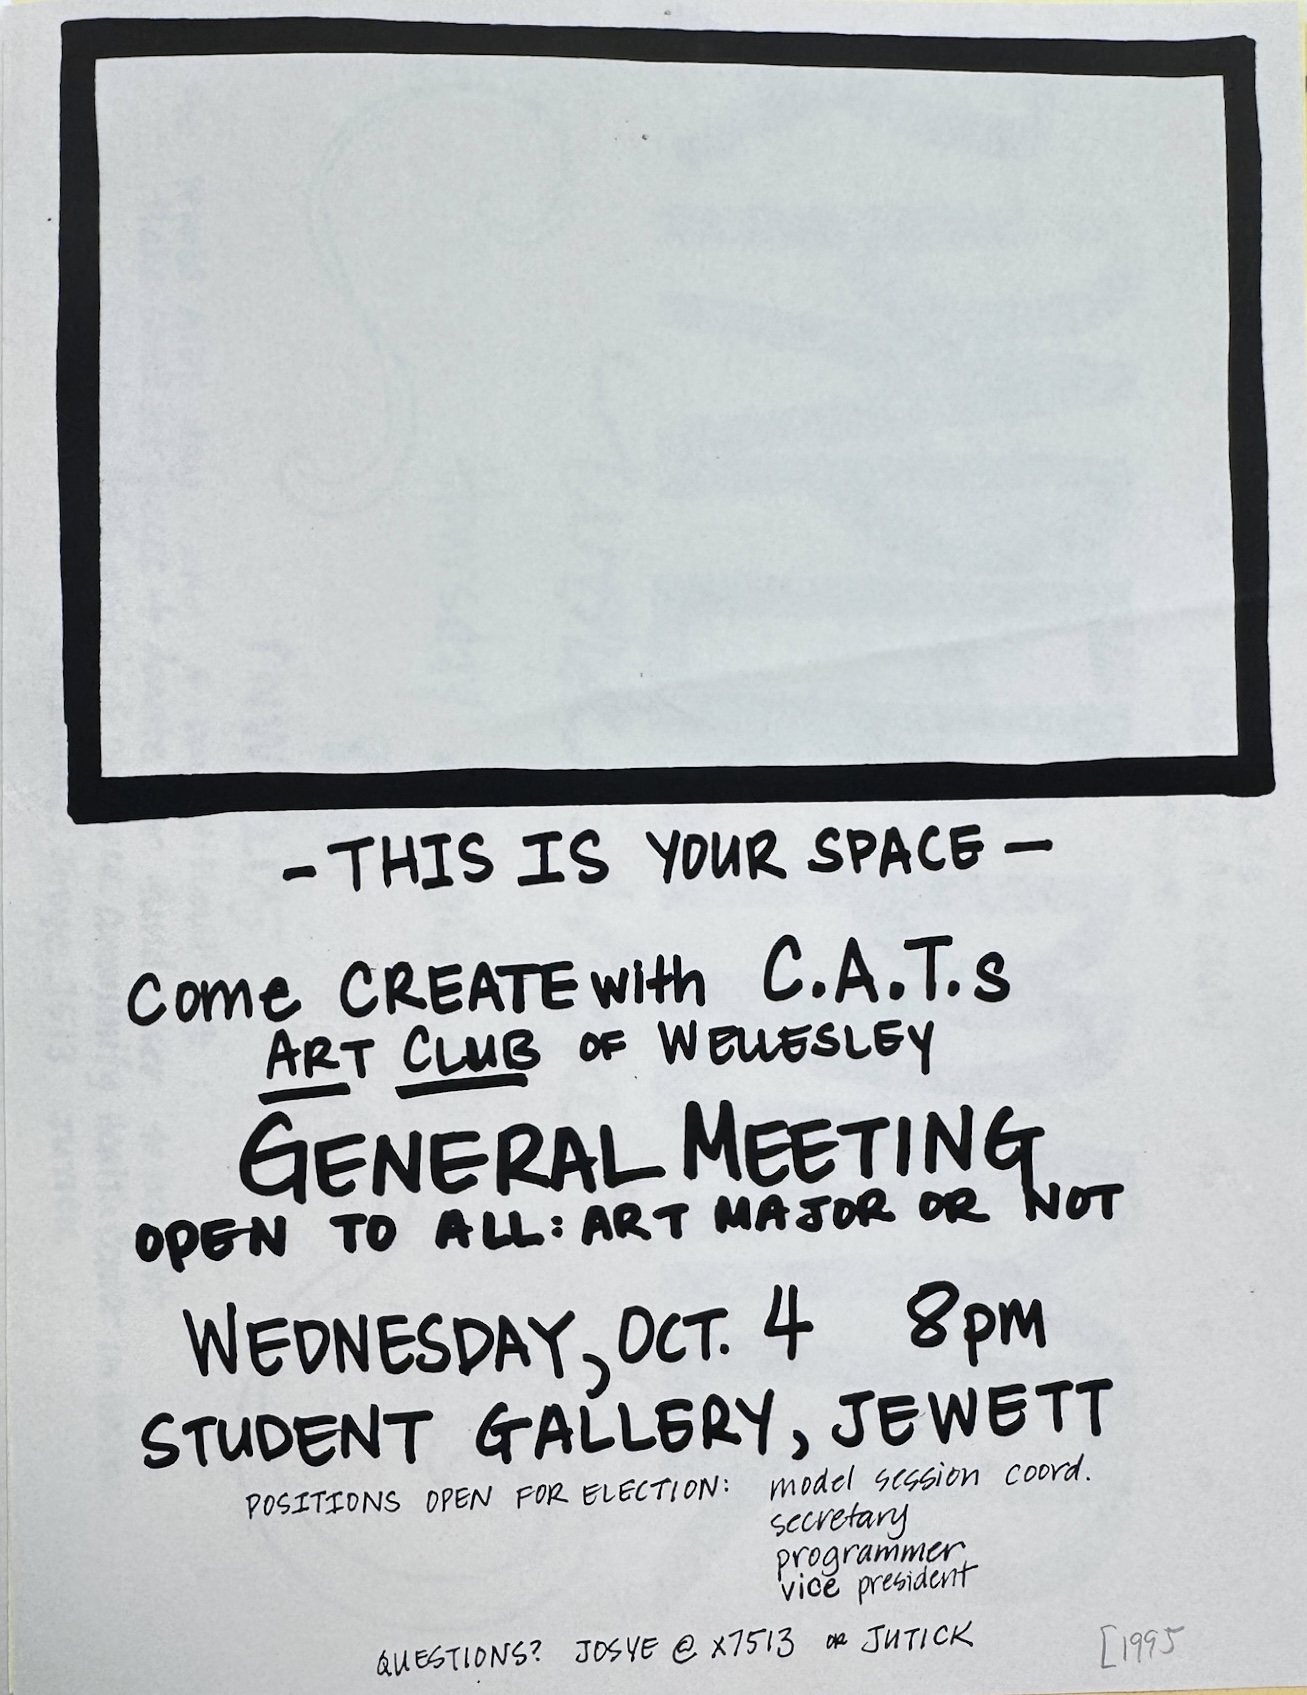 - THIS IS YOUR SPACE -
Come CREATE with C.A.T.s
ART CLUB OF WELLESLEY
GENERAL MEETING
OPEN TO ALL: ART MAJOR OR NOT
WEDNESDAY, OCT. 4 8pm
STUDENT GALLERY, JEWETT
POSITIONS OPEN FOR ELECTION: model session coord.
secretary
programmer
vice president
QUESTIONS? JOSYE @ x7513 OR JUTICK
[1995